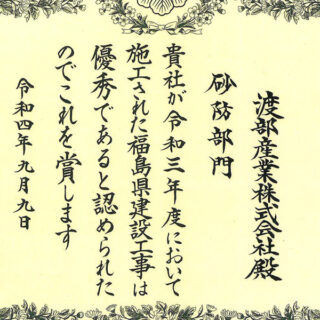 渡部産業株式会社殿
砂防部門
貴社が令和三年度において
施工された福島県建設工事は
優秀であると認められた
のでこれを賞します
令和四年九月九日